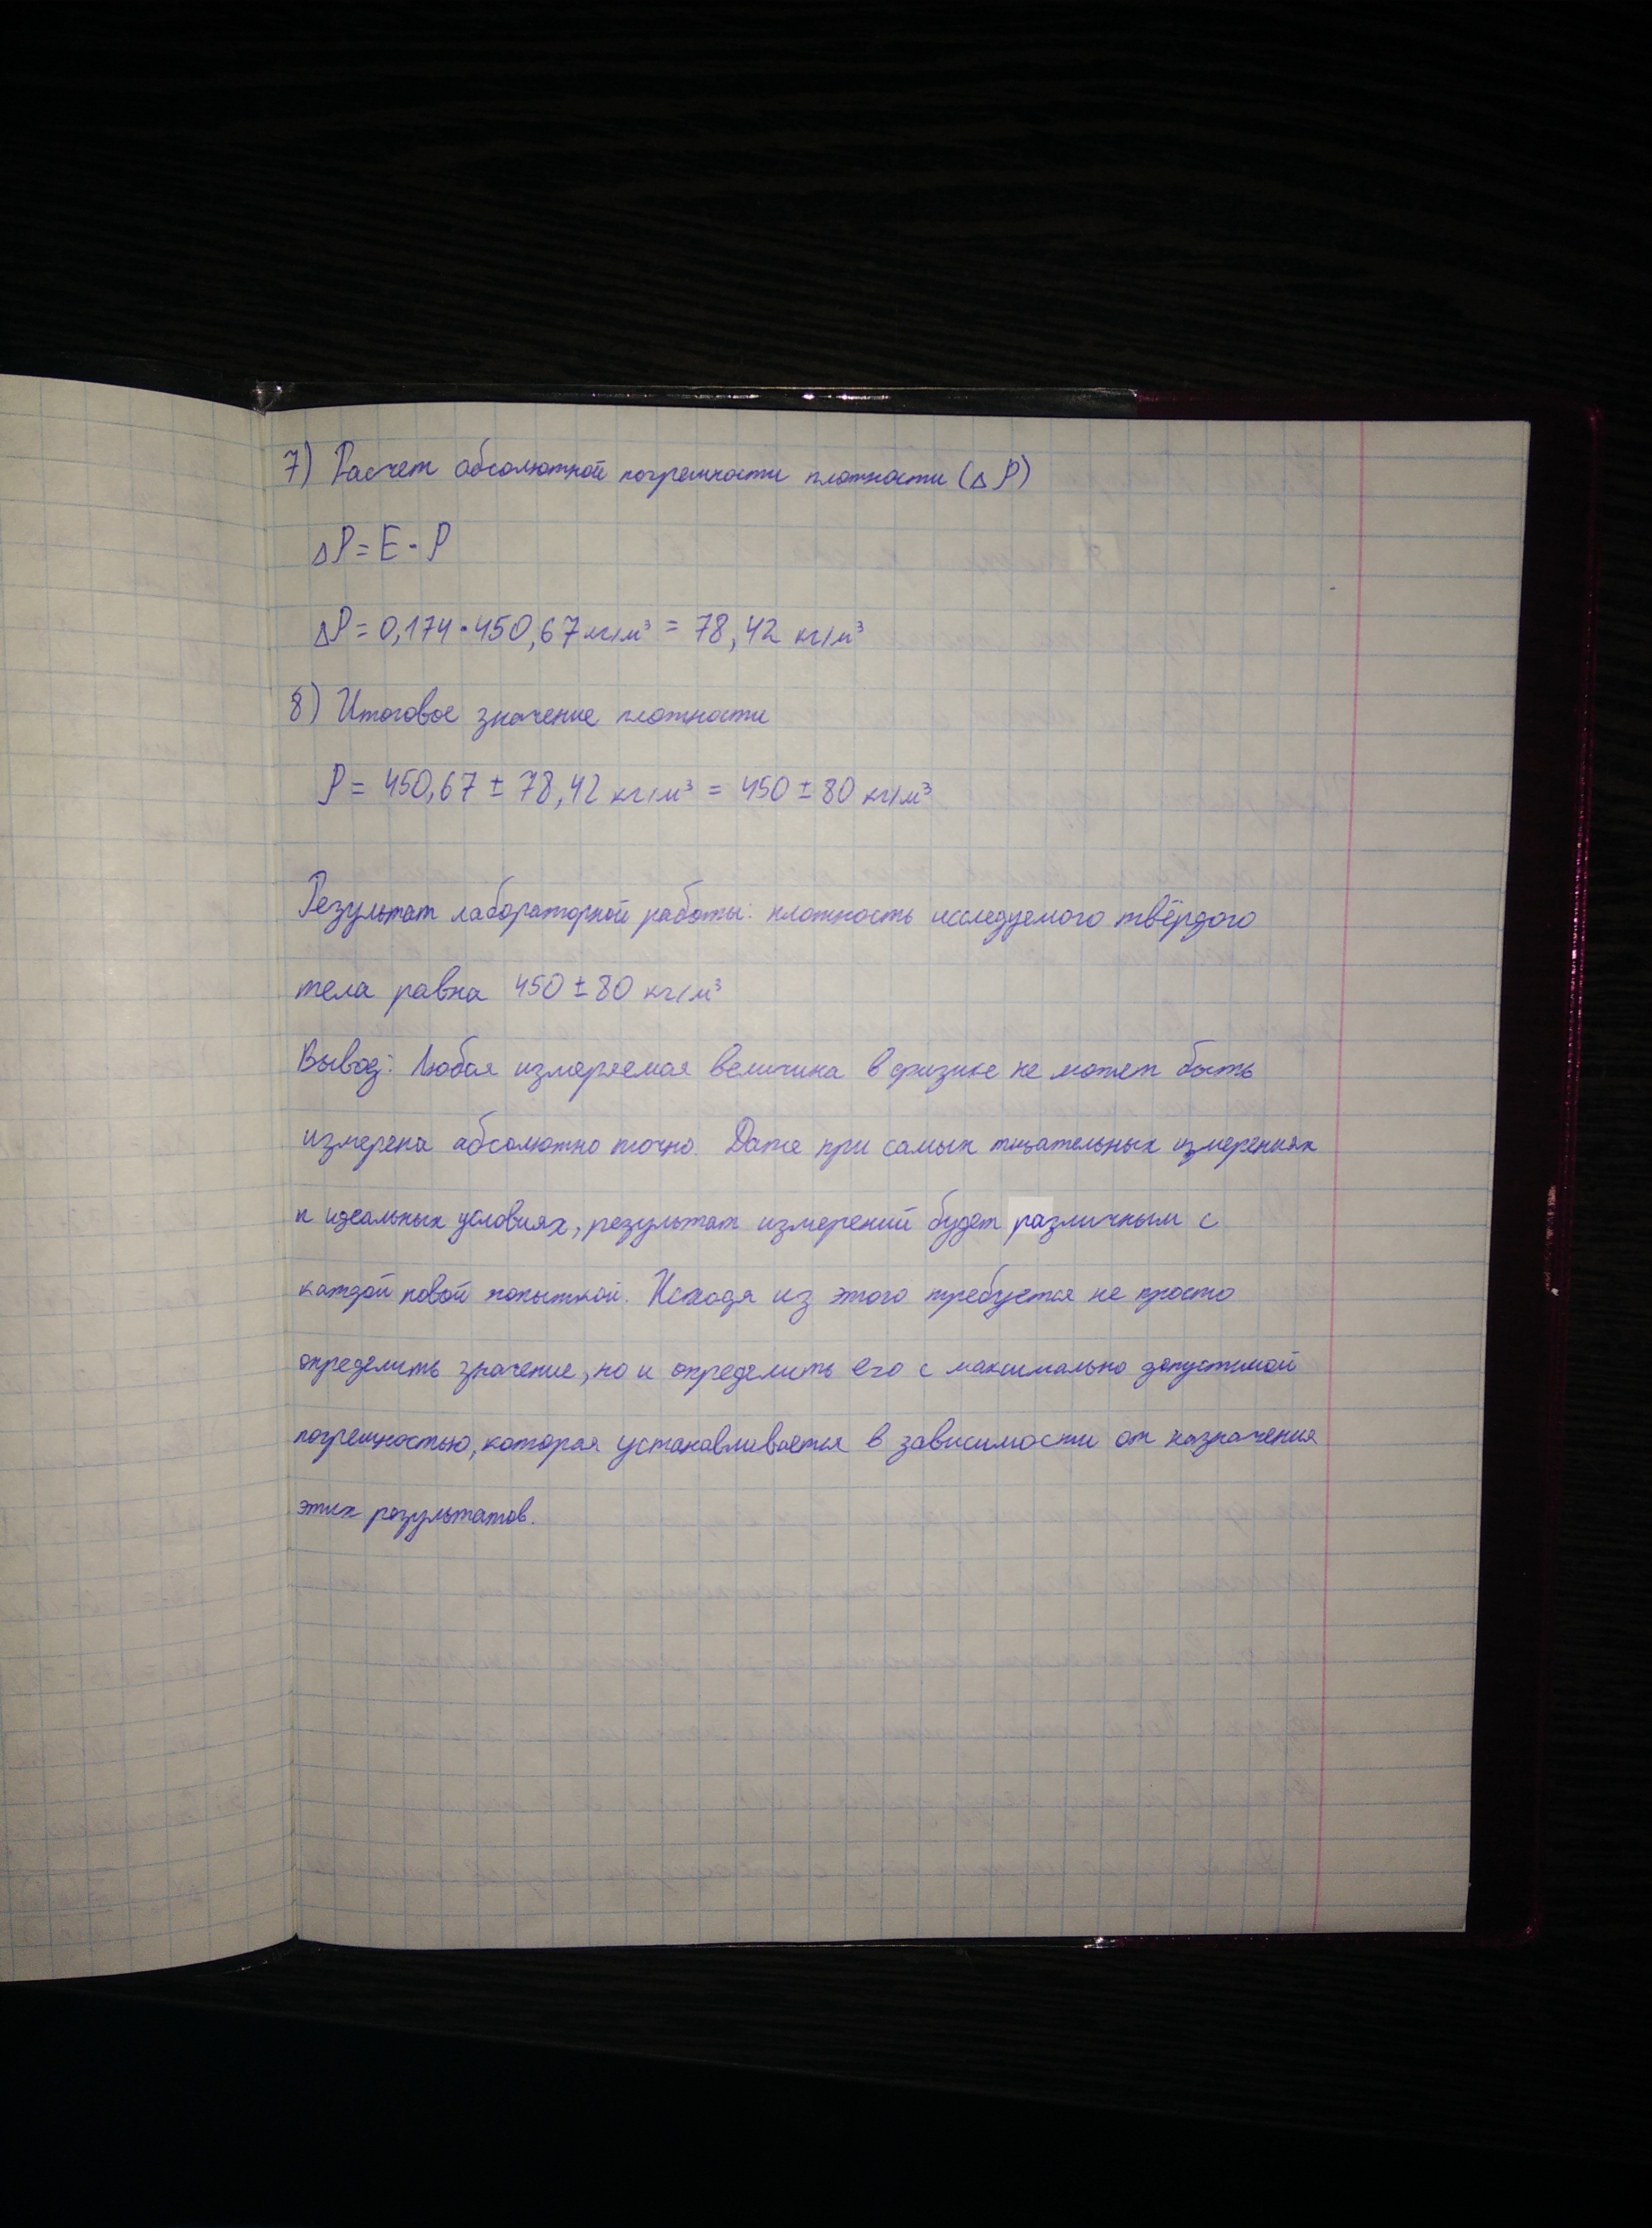 7) Расчет абсолютной погрешности плотности (Δ P)
ΔP = E · P
ΔP = 0,174 · 450,67 кг/м³ = 78,42 кг/м³
8) Итоговое значение плотности
P = 450,67 ± 78,42 кг/м³ = 450 ± 80 кг/м³
Результат лабораторной работы: плотность исследуемого твёрдого
тела равна 450 ± 80 кг/м³
Вывод: Любая измеряемая величина в физике не может быть
измерена абсолютно точно. Даже при самых тщательных измерениях
и идеальных условиях, результат измерений будет различным с
каждой новой попыткой. Исходя из этого требуется не просто
определить значение, но и определить его с максимально допустимой
погрешностью, которая устанавливается в зависимости от назначения
этих результатов.